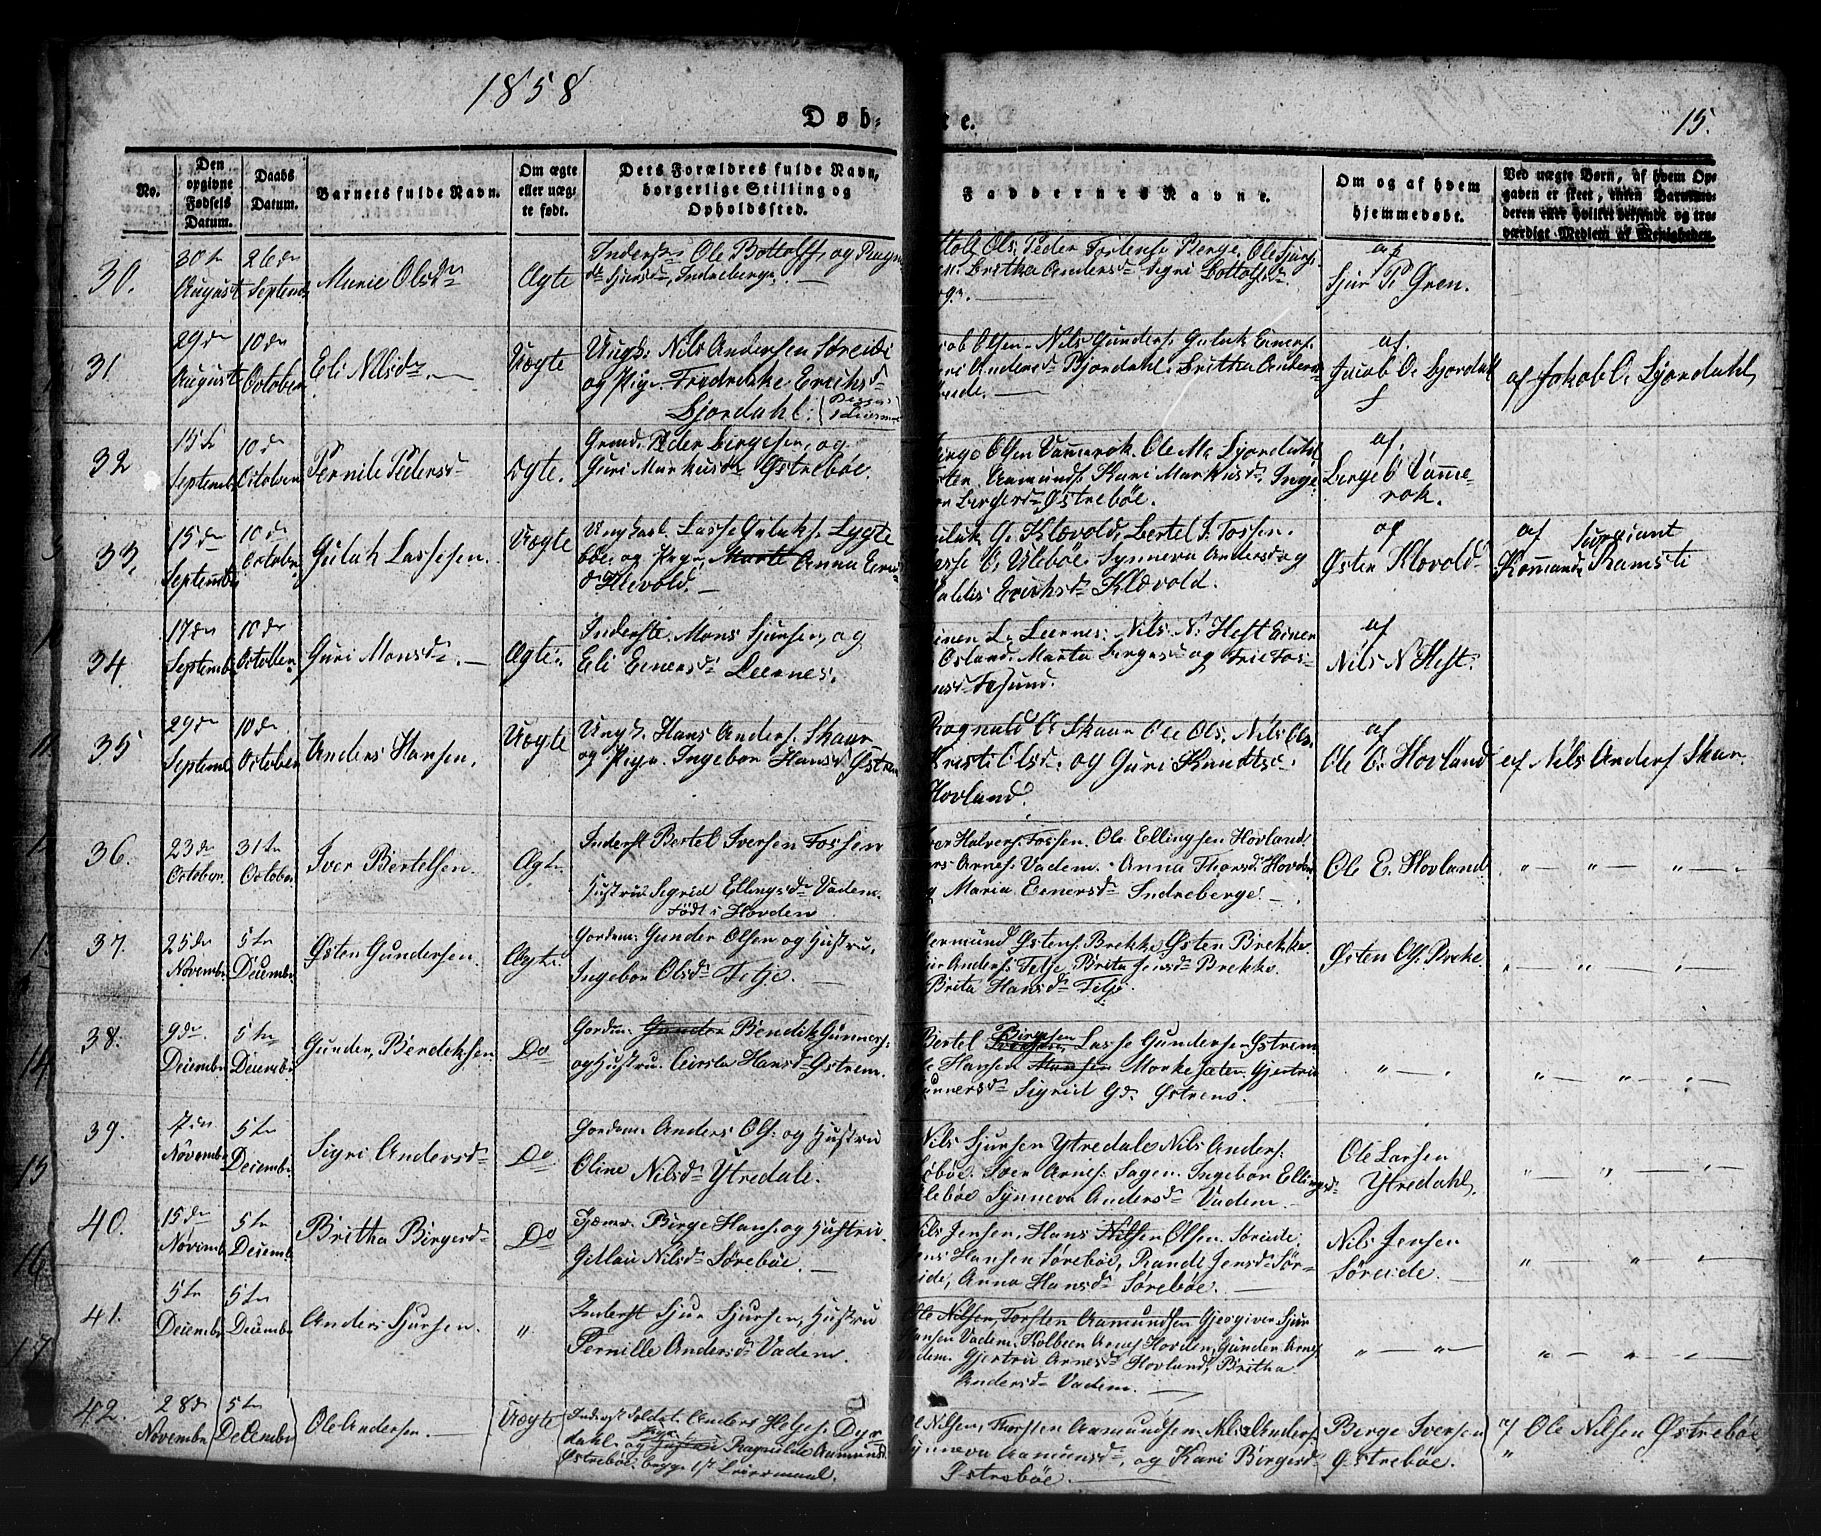 1858
Døb-
te.
15.
No.
Den opgivne Fødsels Datum.
Daabs Datum.
Barnets fulde Navn.
Om ægte eller uægte født.
Dets Forældres fulde Navn, borgerlige Stilling og Opholdssted.
Faddernes Navne.
Om og af hvem hjemmedøbt.
Ved uægte Børn, af hvem Opgaven er skeet, uden Barnemoderen eller hvilket beksende og troværdigt Medlem af Menigheden.
30.
30te August
26de Septemb
Marie Olsdr
Ægte
Inderst Ole Bottolfs og Ragn
dr Sjursdr, Indreberge. —
Ols. Peder Britha Andersdr Sigri Bottolfsdr
af
Sjur P. Gren.
31.
29de August
10de October
Eli Nilsdr —
Uægte
Ungk: Nils Andersen Søreide
og Pige Fredrikke Erichsdr
Ljordahl:
Olsen Nils Gunders. Guluk Einers:
Andersdr Bjordahl. Britha Anders
af
Jacob O. Ljordahl
af Jakob O. Ljordahl
32
15de Septemb
10de October
Pernile Pedersdr
Ægte.
Grmd. Peder Birgesen, og
Guri Markusdr Østrebøe.
Olsen Vamerok Ole M. Ljordahl
Aamunds. Kari Markusdr. Inge
Bergersdr Østrebøe.
af
Berge O Vame-
rok.
33.
15de Septembr
10de October
Guluk Lassesen.
Uægte
Ungkarl Lasse Guluks. Lygte
bøe og Pige, Marte Anna Eriks
dr Klevold. —
Guluk G. Klævold, Bertel I. Fossen.
Lasse O. Ulebøe Synneva Andersdr og
Valdis Erichsdr Klævold.
af
Østen Klovold
af Sergeant
Komand Ramsti
34.
17de Septembr
10de October
Guri Monsdr. —
Ægte.
Inderste. Mons Sjursen, og
Eli Einersdr Leernes.
Einen L. Leernes: Nils N. Heft Einer
Osland. Marta Bergesdr og
af
Nils N Heft.
35
29de Septemb
10de October
Anders Hansen,
Uægte
Ungk. Hans Anders. Skaar
og Pige. Ingebor Hansdr Østrem
Ragnald O. Skaar Ole Ols. Nils Ols.
Kristi Olsdr. og Guri Knudtsdr.
Hovland.
af
Ole E. Hovland
af Nils Anders Skar
36.
23de October
31te October
Iver Bertelsen.
Ægte
Inderst Bertel Iversen Fossen
Hustru Sigrid Ellingsdr Vadem.
født i Hovden
Iver Halvors. Fossen. Ole Ellingsen Hovland
Arnes. Vadem. Anna Thorsdr. Hovden
og Maria Einersdr Indreberge. —
Ole E. Hovland.
" — " — " — "
37.
25de Novembr
5te Decembr
Østen Gundersen.
Ægte
Gordm: Gunder Olsen og Hustru,
Ingebor Olsdr Tetje. —
Hermund Østens. Brekke Østen Brekke
Anders. Tetje, Brita Jensdr Brekke.
Brita Hansdr Tetje.
Østen Ols. Breke.
" — " — " —
38.
9de. Decembr
5te Decembr
Gunder, Bendiksen
Do
Gordm: Gunder Bendik Gunners:
og Hustru. Cirsta Hansdr Østrem.
Bertel Birgesen Lasse Gundersen Østrem
Ole Hansen Monsen Morkesæter. Gjertru
Gunnersdr Sigrid Gdr. Østrem.
" — "
" — " — " —
39.
7de Novembr
5te Decembr
Sigri Andersdr
Do
Gordm: Anders Ols: og Hustru
Oline Nilsdr Ytredale.
Nils Sjursen Ytredale Nils Anders:
Iver Arnes: Sagen. Ingebor Ellingsdr
Synneva Andersdr Vadem. —
Ole Larsen
Ytredahl.
" — " — " —
40.
15de Novemb
5te Decemb
Britha Birgersdr
Do
Husm. Birge Hans. og Hustru.
Gitlau Nilsdr Sørebøe. —
Nils Jensen, Hans Nilsen Olsen. Søreide,
Jens Hansen Sørebøe, Rande Jensdr Sør-
eide, Anna Hansdr Sørebøe. —
Nils Jensen
Søreide. —
" — " — " —
41.
5te Decembr
5te Decembr
Anders Sjursen.
"
Inderst Sjur Sjursen, Hustru
Pernille Andersdr Vadem.
Ole Nilsen, Torsten Aamundsen Gjesgiver Sjur
Hansen Vadem, Holbeen Arnes Hovden, Gunder. Arnes
Vadem. Gjertru Arnesdr Hovland, Britha
Andersdr Vadem. —
" — " —
" — " — " —
42.
28de Novembr
5te Decembr
Ole Andersen. —
Uægte
Inderst Soldat Anders Helges. Dyr
dahl, og Pige Hustru Ragnilde Aamunds
Østrebøe, begge 1st Leiermaal.
Ole Nilsen, Torsten Aamundsen, Nils Anders:
Synneva Aamundsdr, og Kari Birgersdr
Østrebøe. —
Berge Iversen
Østrebøe.
af Ole Nilsen Østrebøe
"
14
15
16
17